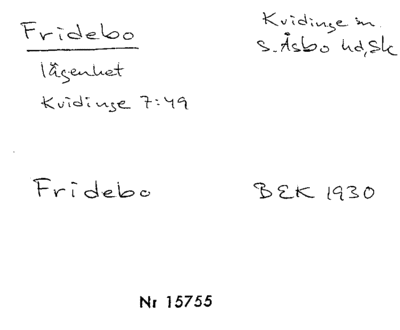 Fridebo
Kvidinge sn.
S. Åsbo hd, Sk
lägenhet
Kvidinge 7:49
Fridebo
BEK 1930
Nr 15755